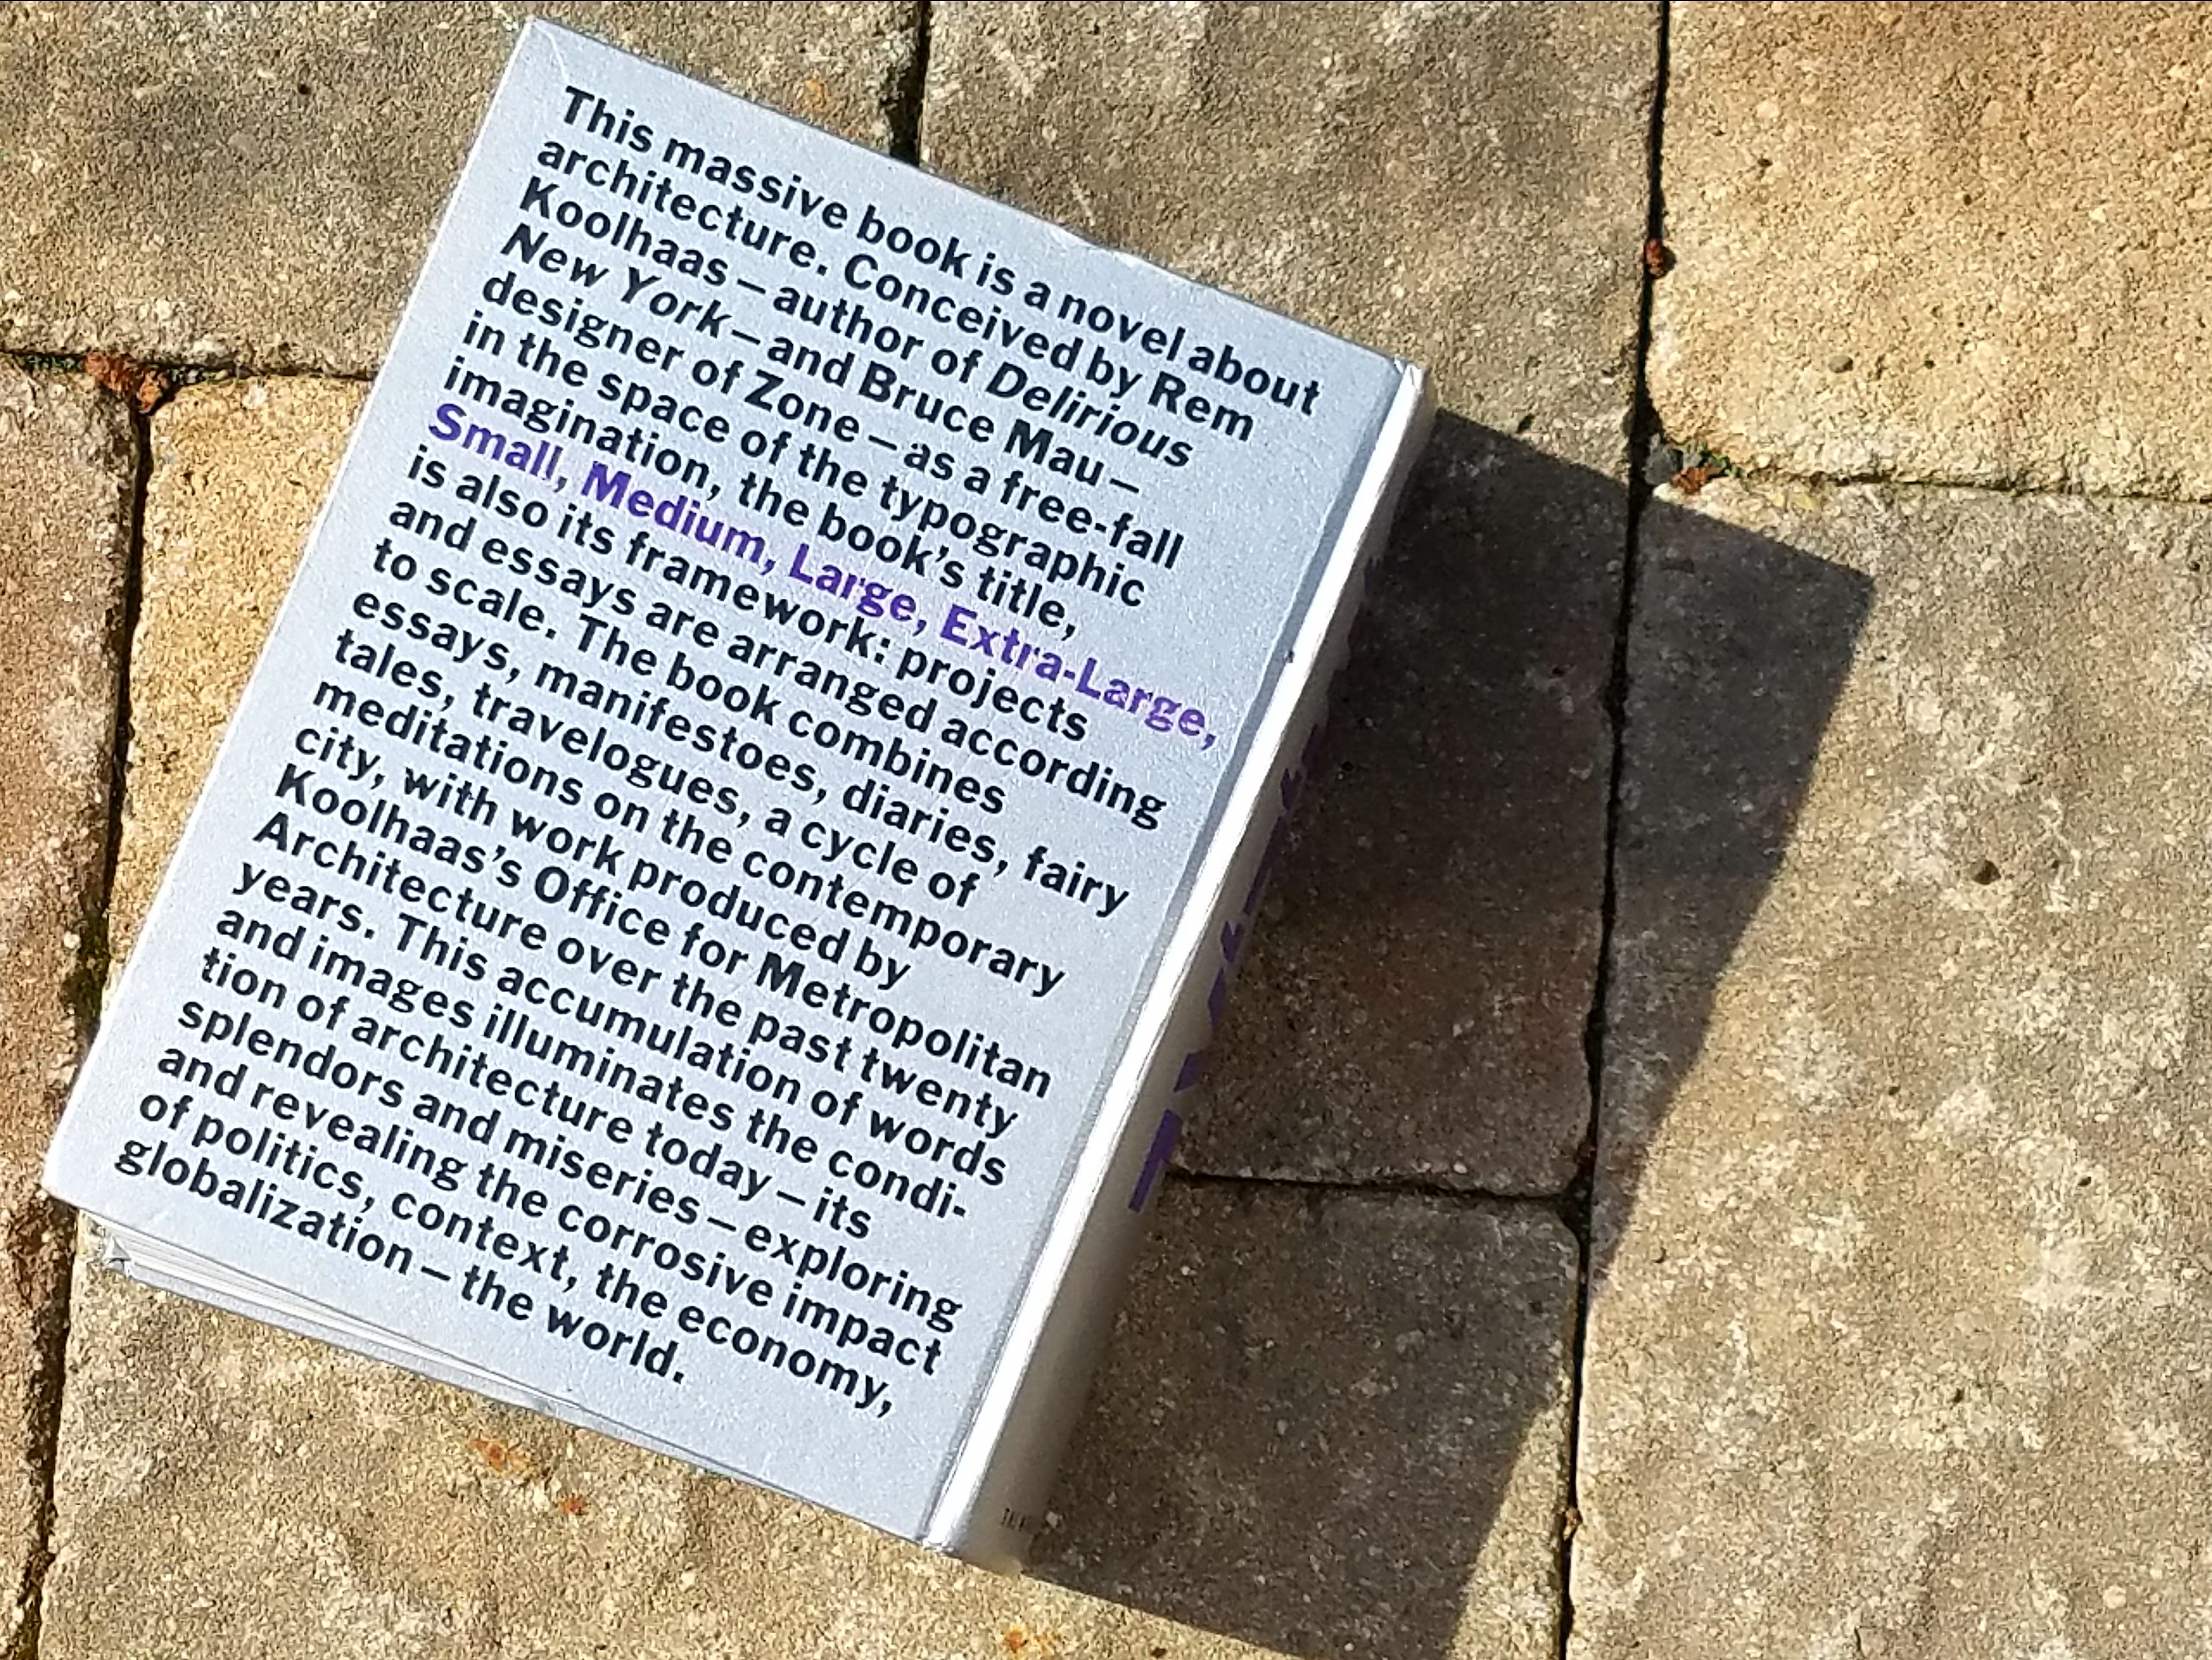 This massive book is a novel about
architecture. Conceived by Rem
Koolhaas – author of Delirious
New York – and Bruce Mau –
designer of Zone – as a free-fall
in the space of the typographic
imagination, the book's title,
Small, Medium, Large, Extra-Large,
is also its framework: projects
and essays are arranged according
to scale. The book combines
essays, manifestoes, diaries, fairy
tales, travelogues, a cycle of
meditations on the contemporary
city, with work produced by
Koolhaas's Office for Metropolitan
Architecture over the past twenty
years. This accumulation of words
and images illuminates the condi-
tion of architecture today – its
splendors and miseries – exploring
and revealing the corrosive impact
of politics, context, the economy,
globalization – the world.